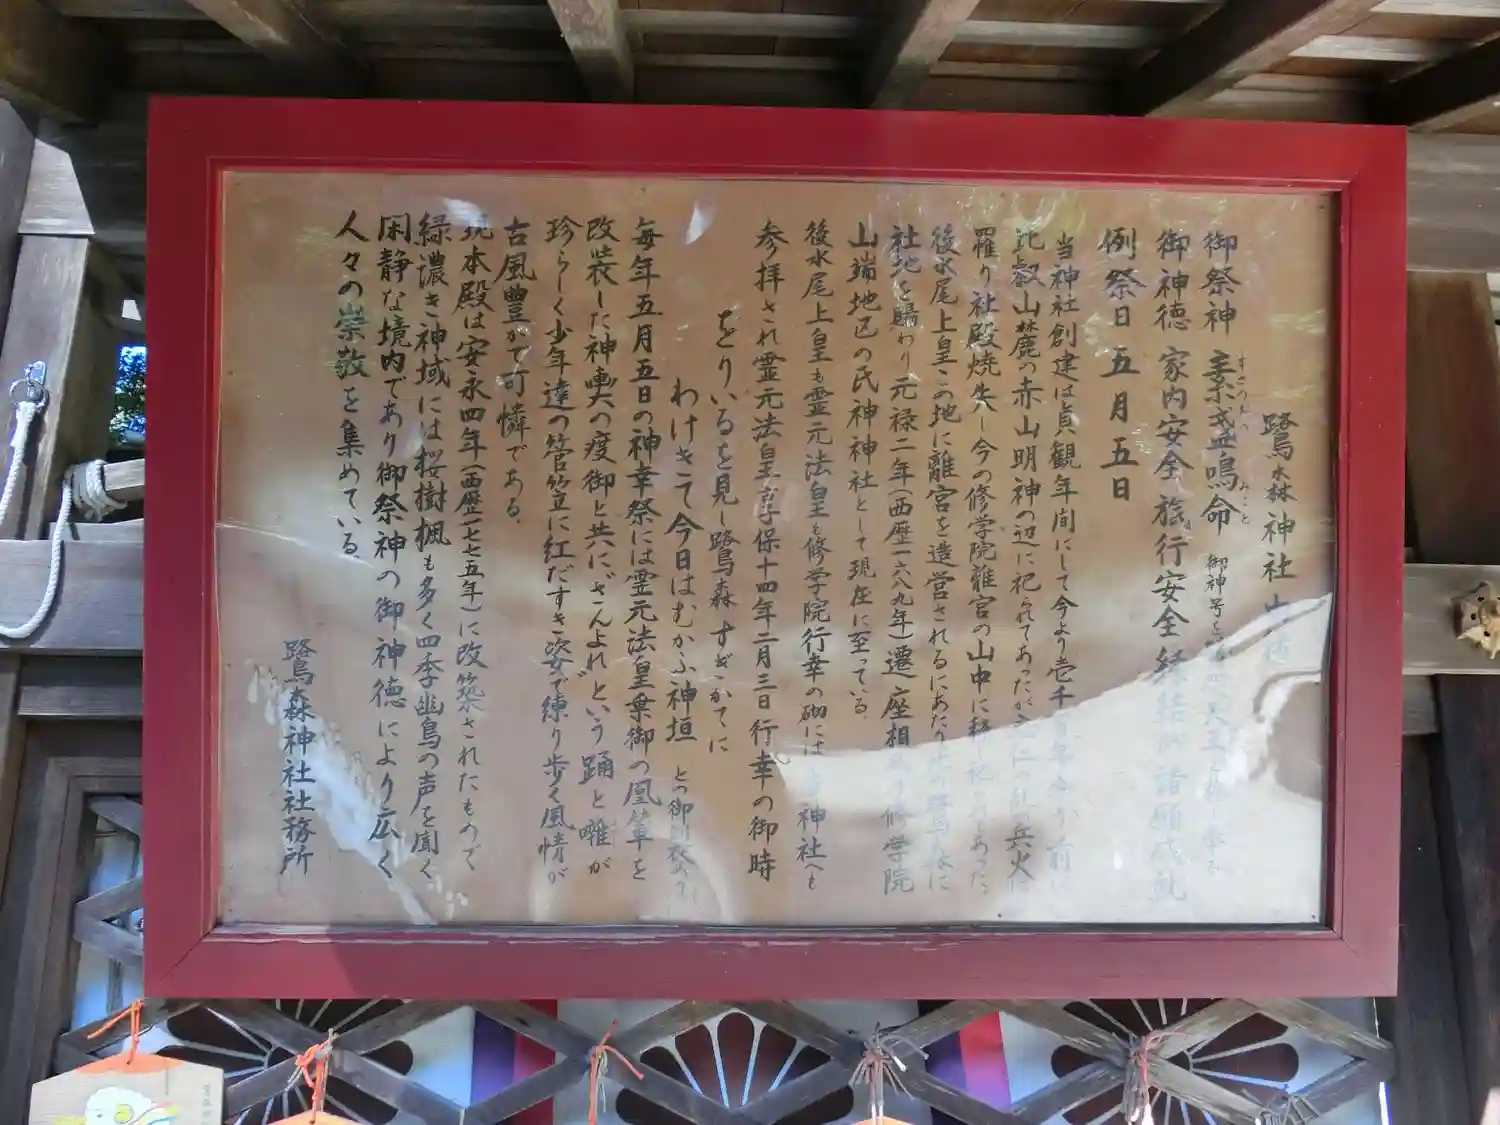 鷺森神社
御祭神 素盞鳴命 御神号を
すさのをの みこと
御神徳 家内安全 旅行安全 縁結び 諸願成就
例祭日 五月五日
当神社創建は貞観年間にして今より壱千
比叡山麓の赤山明神の辺に祀られてあったが応仁の乱の兵火に
罹り社殿焼失し今の修学院離宮の山中に移し祀
後水尾上皇この地に離宮を造営されるにあたり此の鷺森に
社地を賜わり元禄二年(西歴一六八九年)遷座相成り修学院
山端地区の氏神神社として現在に至っている。
後水尾上皇も霊元法皇も修学院行幸の砌には当神社へも
参拝され霊元法皇享保十四年二月三日行幸の御時
をりいるを見し鷺森すぎがてに
わけきて今日はむかふ神垣 との
毎年五月五日の神幸祭には霊元法皇乗御の鳳輦を
改装した神輿の渡御と共にざんよれという踊と囃が
珍らしく少年達の菅笠に紅だすき姿で練り歩く風情が
古風豊かで可憐である。
現本殿は安永四年(西歴一七七五年)に改築されたもので
緑濃き神域には桜樹楓も多く四季幽鳥の声を聞く
閑静な境内であり御祭神の御神徳により広く
人々の崇敬を集めている。
鷺森神社社務所